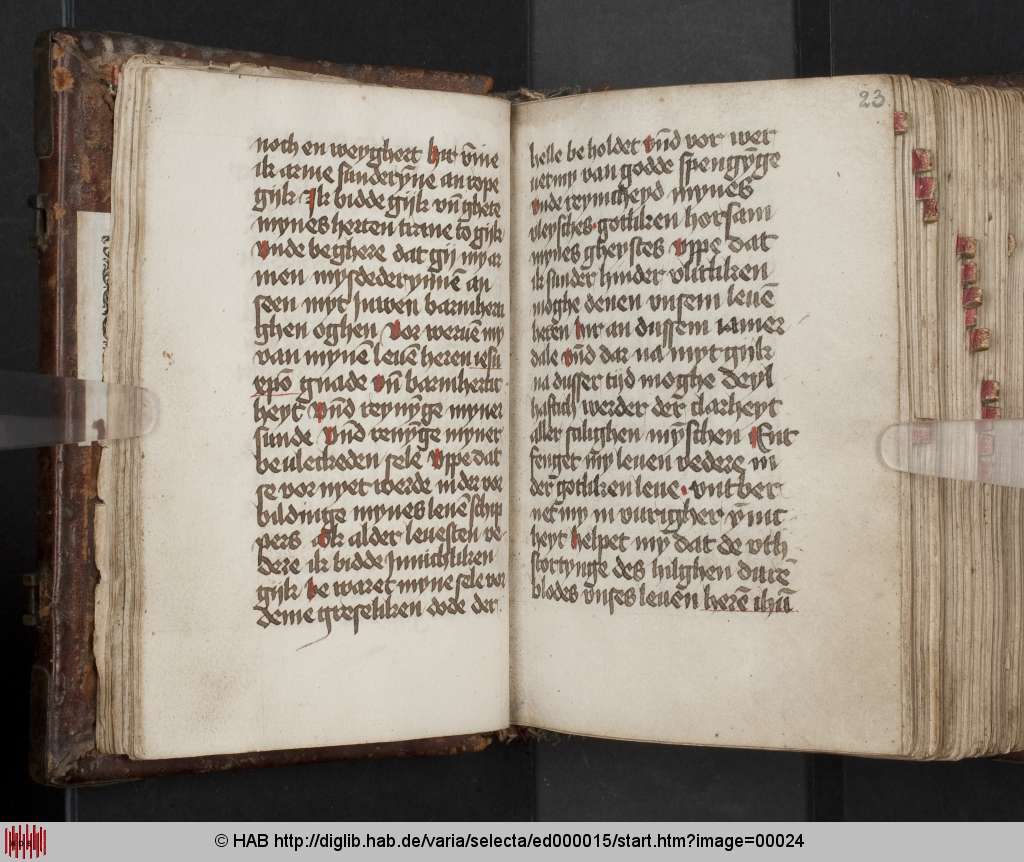 noth en weyghert hir v̄me
ik arme sunderȳne an rope
gijk Jk bidde gijk vn̄ ghete
mynes herten trane to gijk
vnde beghere dat gij my ar
men mysdederyn̄en an
seen myt Juwen barmherti
ghen oghen Vor weruē my
van mynē leuē heren iesu
xp̄o gnade vn̄ barmhertic
heyt vn̄d reynȳge myner
sunde vn̄d renȳge myner
beuleckeden sele Vppe dat
se vor nyet werde in der vor
bildinge mynes leuē schip
pers Ok alder leuesten ve
dere ik bidde Jnnichliken
gijk be waret myne sele vor
deme greseliken dode der
23
helle be holdet vn̄d vor wer
uet my van godde spengȳge
vnde reyncheyd mynes
vleysches gotliken horsam
mynes gheystes Vppe dat
ik sunder hinder vlitliken
moghe denen vnsem leuē
heren hir an dussem iamer
dale vn̄d dar na myt gijk
na dusser tijd moghe deyl
haftich werder der clarheyt
aller salighen mȳschen Ent
fenget my leuen vedere in
der gotliken leue vnt ber
net my in vurigher ȳnic
heyt helpet my dat de vth
stortynge des hilghen durē
blodes vnses leuen herē ihū
© HAB http://diglib.hab.de/varia/selecta/ed000015/start.htm?image=00024